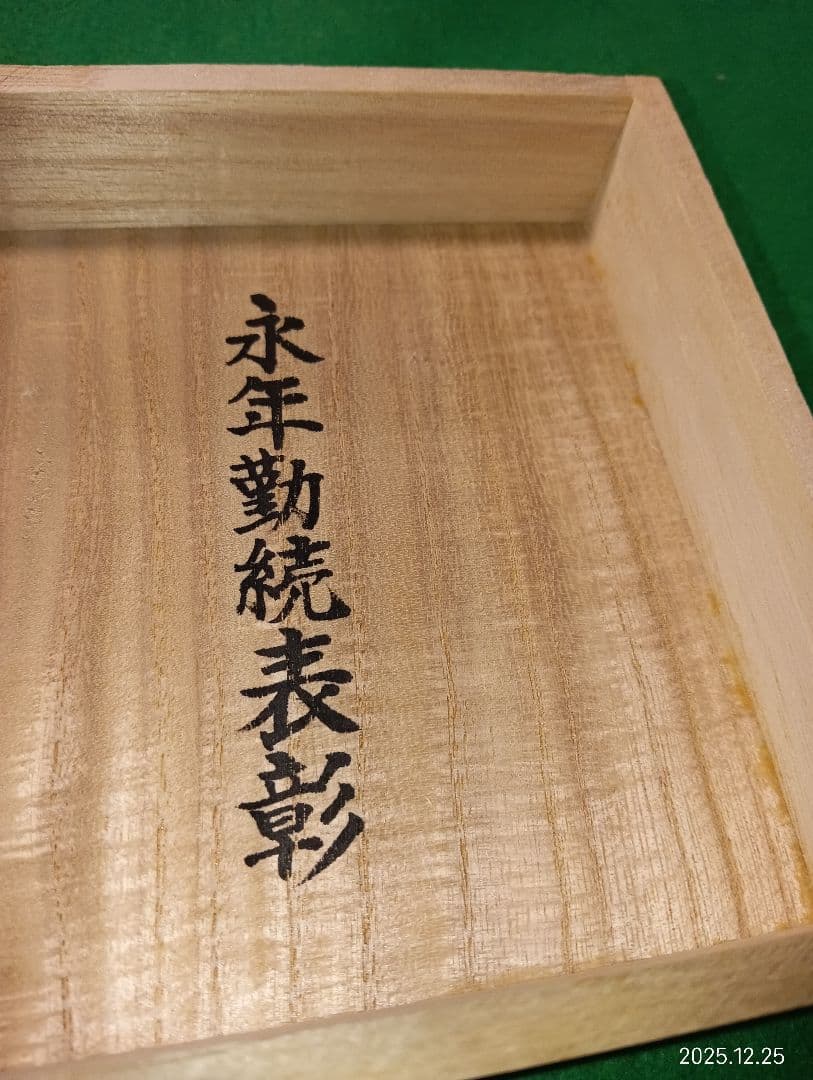 永年勤続表彰
2025.12.25